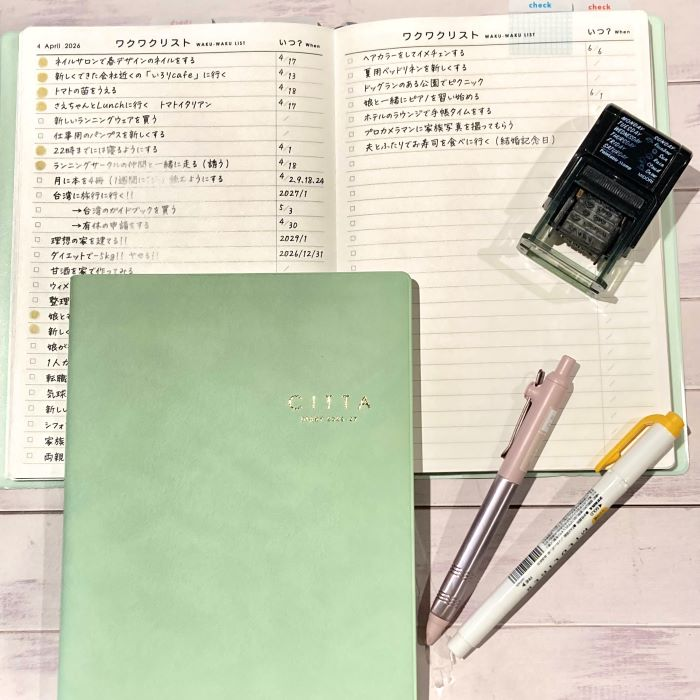 4 April 2026
ワクワクリスト WAKU-WAKU LIST
いつ? When
ネイルサロンで春デザインのネイルをする 4/17
新しくできた会社近くの「いろりcafe」に行く 4/13
トマトの苗をうえる 4/18
さえちゃんとLunchに行く トマトイタリアン 4/17
新しいランニングウェアを買う
仕事用のパンプスを新しくする
22時までには寝るようにする 4/1
ランニングサークルの仲間と一緒に走る(誘う) 4/18
月に本を4冊(1週間に 読むようにする 4/2.9.18.24
台湾に旅行に行く!! 2027/1
→台湾のガイドブックを買う 5/3
→有休の申請をする 4/30
理想の家を建てる!! 2029/1
ダイエットで-5kg!! ヤセる!! 2026/12/31
甘酒を家で作ってみる
ウィメ
整理
娘と
新し
娘が
1人
転職
気球
新し
シフォ
家族
両親
check
check
ワクワクリスト WAKU-WAKU LIST
いつ? When
ヘアカラーをしてイメチェンする 6/6
夏用ベッドリネンを新しくする
ドッグランのある公園でピクニック
娘と一緒にピアノを習い始める 6/1
ホテルのラウンジで手帳タイムをする
プロカメラマンに家族写真を撮ってもらう
夫とふたりでお寿司を食べに行く(結婚記念日)
MONDAY
TUESDAY
WEDNESDAY
THURSDAY
FRIDAY
SATURDAY
SUNDAY
CITTA
DIARY 2026-27